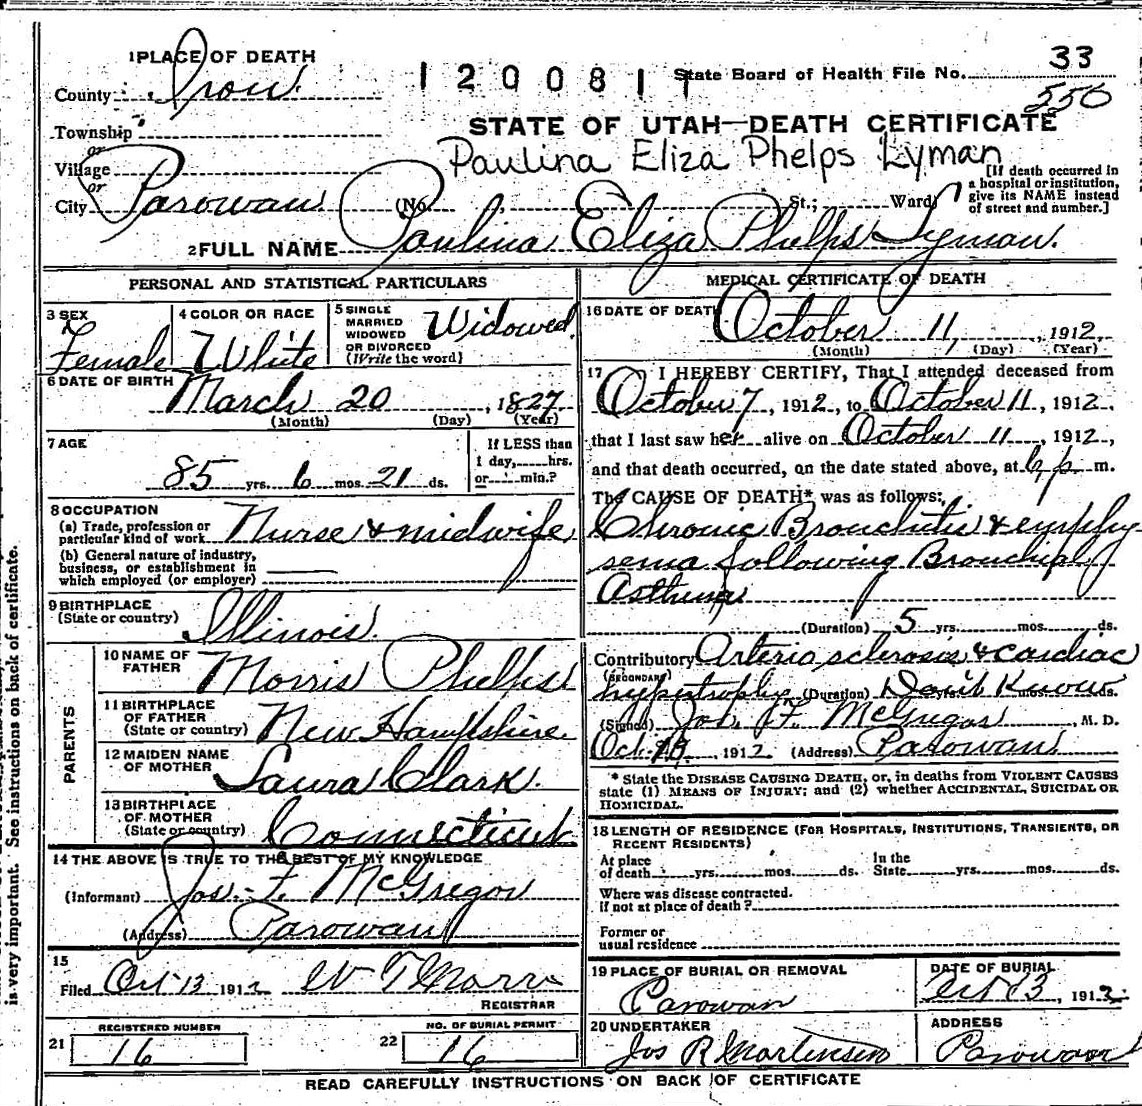 1 PLACE OF DEATH
County Iron
1200811
State Board of Health File No. 33
550
Township
or
Village
or
City Parowan (No. , St.; Ward)
STATE OF UTAH—DEATH CERTIFICATE
Paulina Eliza Phelps Lyman
[If death occurred in
a hospital or institution,
give its NAME instead
of street and number.]
2 FULL NAME Paulina Eliza Phelps Lyman.
PERSONAL AND STATISTICAL PARTICULARS
3 SEX
Female
4 COLOR OR RACE
White
5 SINGLE
MARRIED
WIDOWED
OR DIVORCED
(Write the word)
Widowed
6 DATE OF BIRTH March 20, 1827
(Month) (Day) (Year)
7 AGE
85 yrs. 6 mos. 21 ds.
If LESS than
1 day, hrs.
or min.?
8 OCCUPATION
(a) Trade, profession or
particular kind of work Nurse & midwife
(b) General nature of industry,
business, or establishment in
which employed (or employer)
9 BIRTHPLACE
(State or country) Illinois.
PARENTS
10 NAME OF
FATHER Morris Phelps
11 BIRTHPLACE
OF FATHER
(State or country) New Hampshire
12 MAIDEN NAME
OF MOTHER Laura Clark.
13 BIRTHPLACE
OF MOTHER
(State or country) Connecticut
14 THE ABOVE IS TRUE TO THE BEST OF MY KNOWLEDGE
(Informant) Jos. F. McGregor
(Address) Parowan
15
Filed Oct 13 1912 W T Morris
REGISTRAR
21 REGISTERED NUMBER
16
22 NO. OF BURIAL PERMIT
16
MEDICAL CERTIFICATE OF DEATH
16 DATE OF DEATH October 11, 1912
(Month) (Day) (Year)
17 I HEREBY CERTIFY, That I attended deceased from
October 7, 1912, to October 11, 1912,
that I last saw her alive on October 11, 1912,
and that death occurred, on the date stated above, at 6 p m.
The CAUSE OF DEATH* was as follows:
Chronic Bronchitis & emphy
sema following Bronchial
Asthma
(Duration) 5 yrs. mos. ds.
Contributory Arterio sclerosis & cardiac
(SECONDARY)
hypertrophy (Duration) Don't Know ds.
(Signed) Jos. F. McGregor, M. D.
Oct. 1912 (Address) Parowan
* State the DISEASE CAUSING DEATH, or, in deaths from VIOLENT CAUSES
state (1) MEANS OF INJURY; and (2) whether ACCIDENTAL, SUICIDAL OR
HOMICIDAL.
18 LENGTH OF RESIDENCE (FOR HOSPITALS, INSTITUTIONS, TRANSIENTS, OR
RECENT RESIDENTS)
At place
of death yrs. mos. ds.
In the
State yrs. mos. ds.
Where was disease contracted.
if not at place of death?
Former or
usual residence
19 PLACE OF BURIAL OR REMOVAL
Parowan
DATE OF BURIAL
Oct 13, 1912
20 UNDERTAKER
Jos R Mortensen
ADDRESS
Parowan
READ CAREFULLY INSTRUCTIONS ON BACK OF CERTIFICATE
is very important. See instructions on back of certificate.